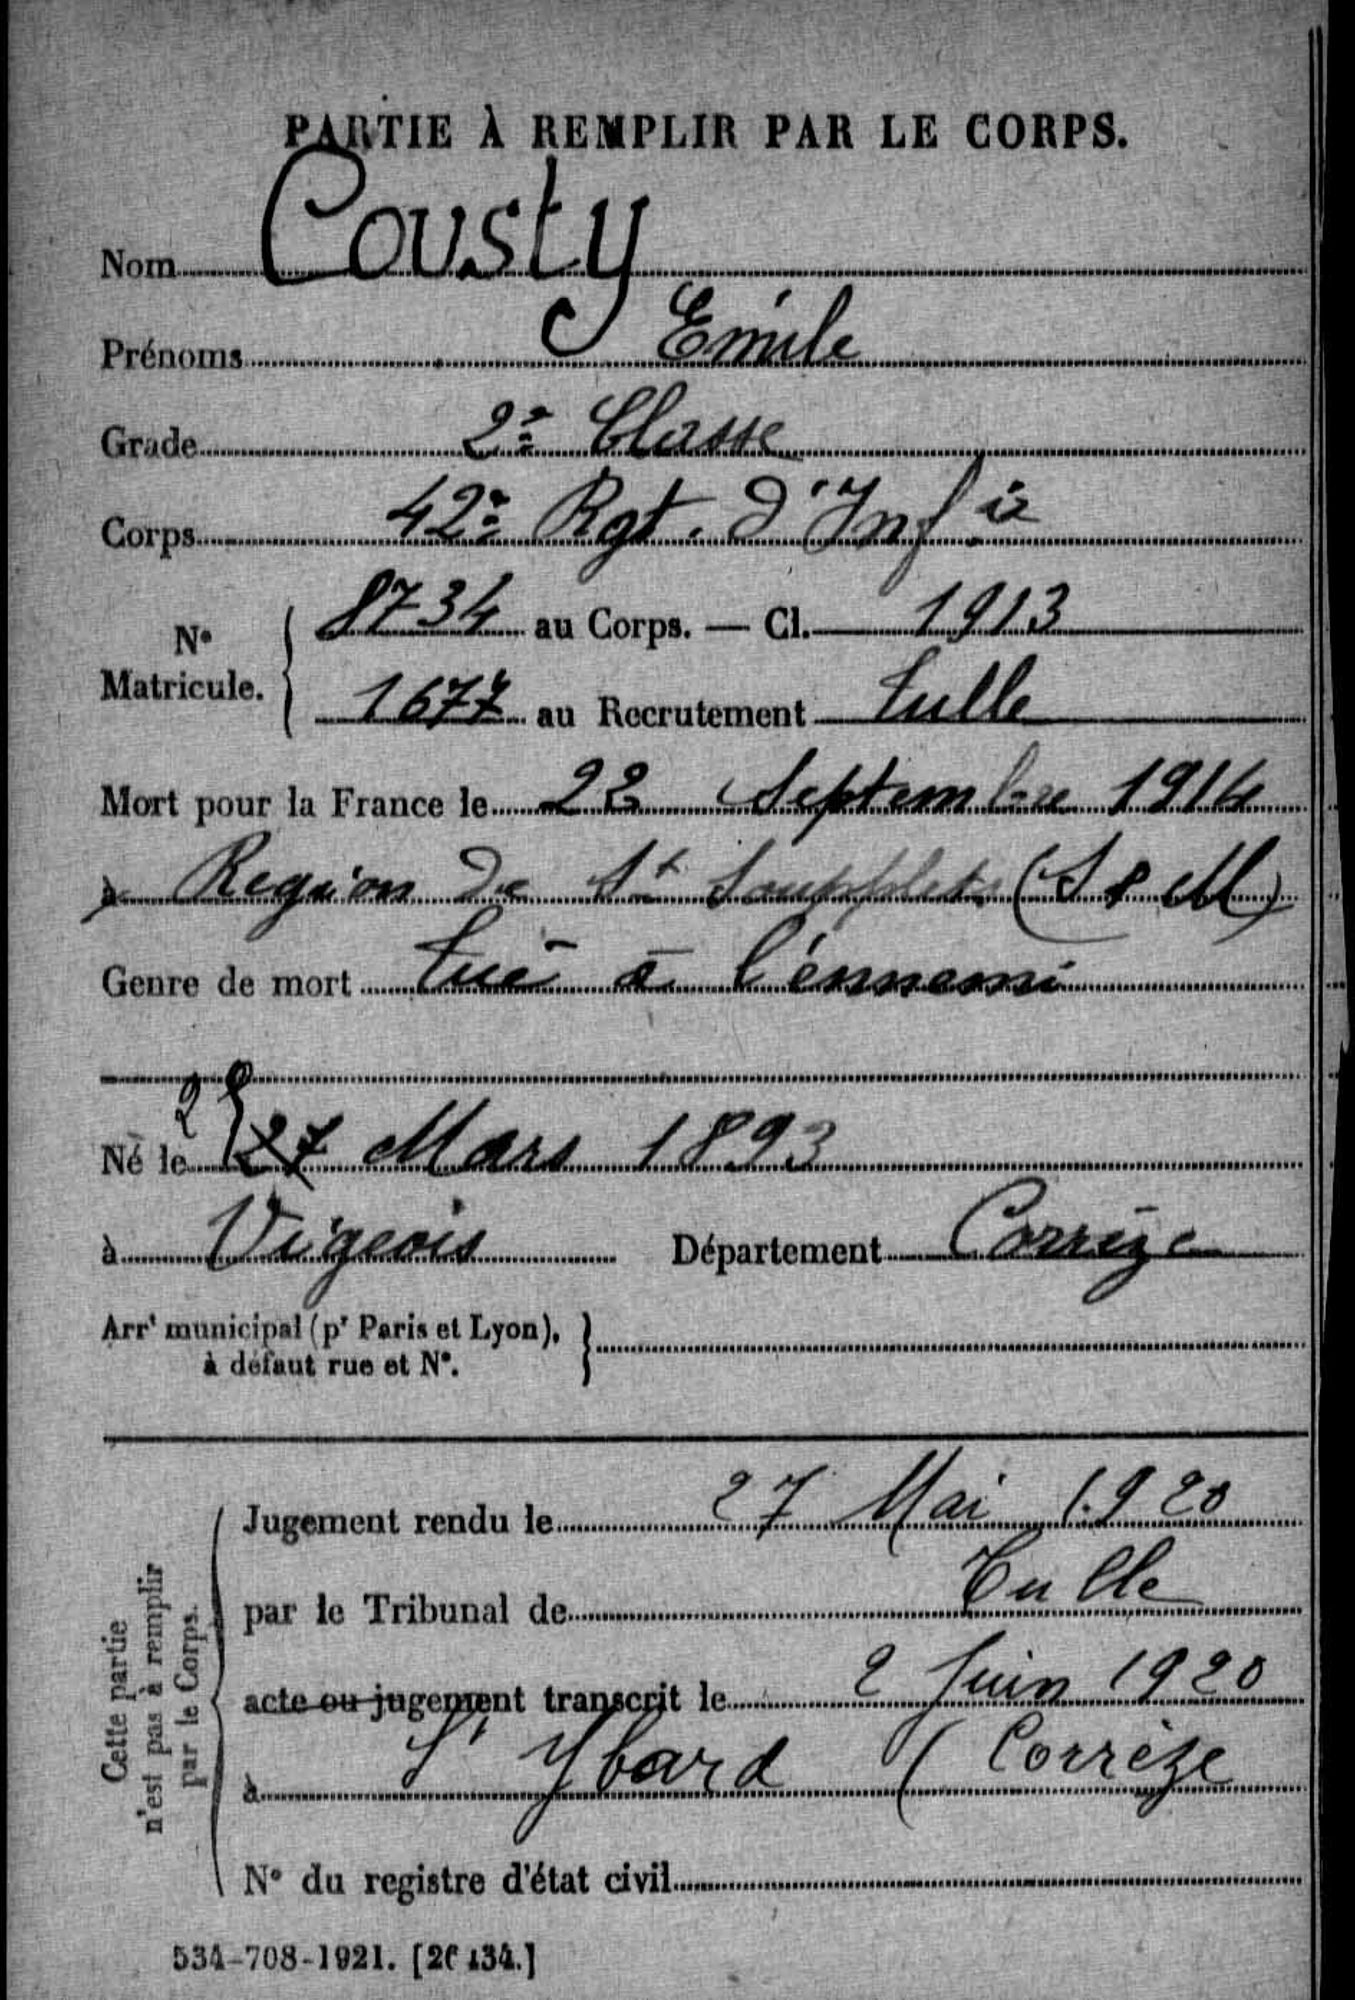 PARTIE À REMPLIR PAR LE CORPS.
Nom Cousty
Prénoms Emile
Grade 2e Classe
Corps 42e Rgt. d'Infie
N° Matricule. { 8734 au Corps. — Cl. 1913
1677 au Recrutement Tulle
Mort pour la France le 22 Septembre 1914
à Region de St Soupplets (S & M)
Genre de mort tué à l'énnemi
28
Né le 27 Mars 1893
à Vigeois Département Corrèze
Arrt municipal (pr Paris et Lyon), }
à défaut rue et N°.
Cette partie
n'est pas à remplir
par le Corps.
Jugement rendu le 27 Mai 1920
par le Tribunal de Tulle
acte ou jugement transcrit le 2 Juin 1920
à St Ybard (Corrèze
N° du registre d'état civil
534-708-1921. [26434.]